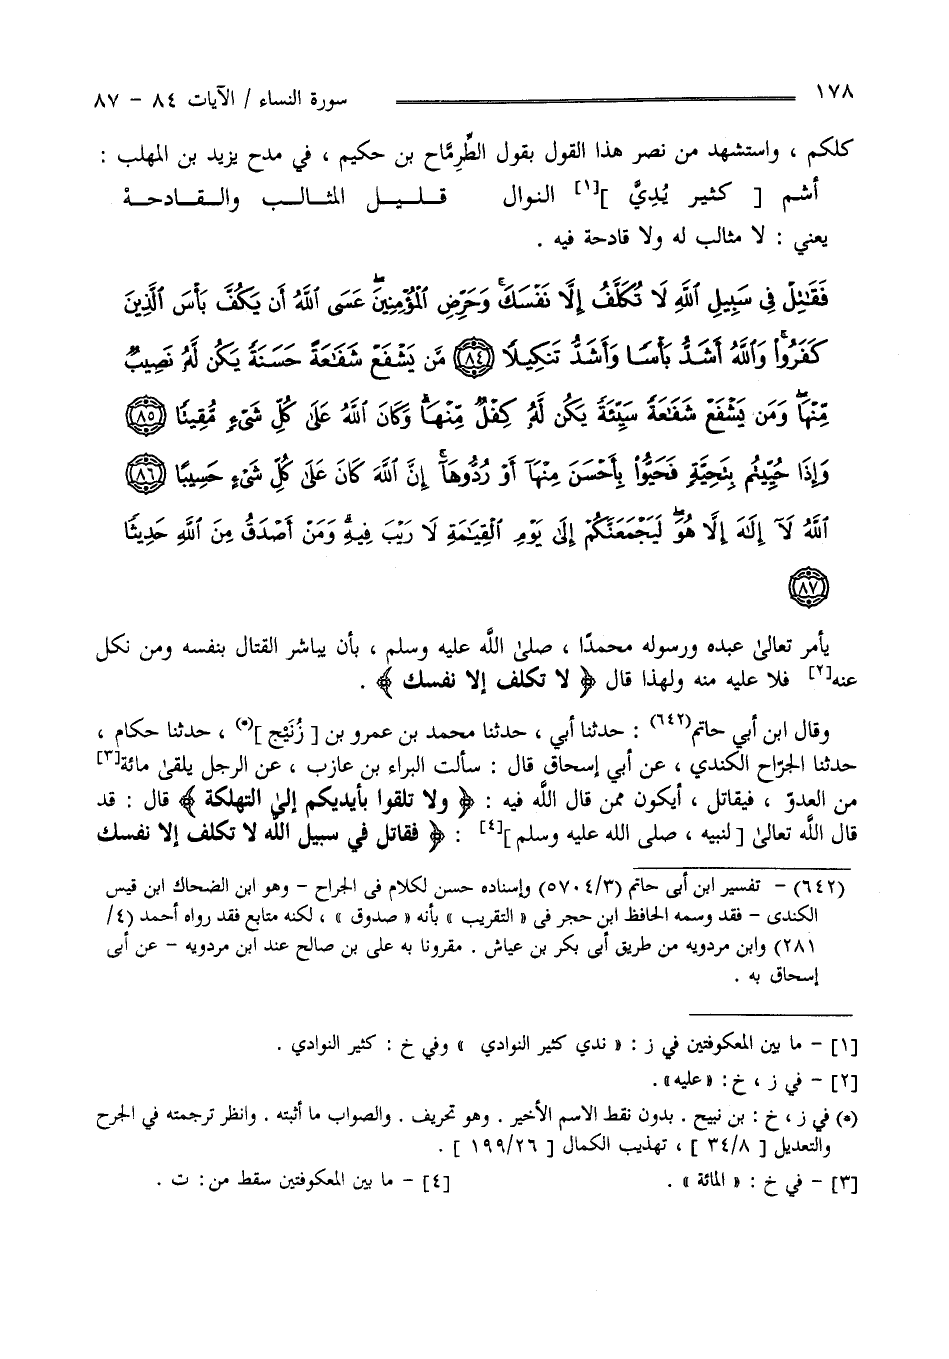 ١٧٨ سورة النساء / الآيات ٨٤ - ٨٧
كلكم ، واستشهد من نصر هذا القول بقول الطِّرِمَّاح بن حكيم ، في مدح يزيد بن المهلب :
أشم [ كثير يُدِيِّ ][١] النوال قليل المثالب والقادحة
يعني : لا مثالب له ولا قادحة فيه .
فَقَٰتِلْ فِى سَبِيلِ ٱللَّهِ لَا تُكَلَّفُ إِلَّا نَفْسَكَ ۚ وَحَرِّضِ ٱلْمُؤْمِنِينَ ۖ عَسَى ٱللَّهُ أَن يَكُفَّ بَأْسَ ٱلَّذِينَ
كَفَرُوا۟ ۚ وَٱللَّهُ أَشَدُّ بَأْسًا وَأَشَدُّ تَنكِيلًا ﴿٨٤﴾ مَّن يَشْفَعْ شَفَٰعَةً حَسَنَةً يَكُن لَّهُۥ نَصِيبٌ
مِّنْهَا ۖ وَمَن يَشْفَعْ شَفَٰعَةً سَيِّئَةً يَكُن لَّهُۥ كِفْلٌ مِّنْهَا ۗ وَكَانَ ٱللَّهُ عَلَىٰ كُلِّ شَىْءٍ مُّقِيتًا ﴿٨٥﴾
وَإِذَا حُيِّيتُم بِتَحِيَّةٍ فَحَيُّوا۟ بِأَحْسَنَ مِنْهَآ أَوْ رُدُّوهَآ ۗ إِنَّ ٱللَّهَ كَانَ عَلَىٰ كُلِّ شَىْءٍ حَسِيبًا ﴿٨٦﴾
ٱللَّهُ لَآ إِلَٰهَ إِلَّا هُوَ ۚ لَيَجْمَعَنَّكُمْ إِلَىٰ يَوْمِ ٱلْقِيَٰمَةِ لَا رَيْبَ فِيهِ ۗ وَمَنْ أَصْدَقُ مِنَ ٱللَّهِ حَدِيثًا
﴿٨٧﴾
يأمر تعالىٰ عبده ورسوله محمدًا ، صلىٰ اللَّه عليه وسلم ، بأن يباشر القتال بنفسه ومن نكل
عنه[٢] فلا عليه منه ولهذا قال ﴿ لا تكلف إلا نفسك ﴾ .
وقال ابن أبي حاتم(٦٤٢) : حدثنا أبي ، حدثنا محمد بن عمرو بن [ زُنَيْج ](*) ، حدثنا حكام ،
حدثنا الجرّاح الكندي ، عن أبي إسحاق قال : سألت البراء بن عازب ، عن الرجل يلقىٰ مائة[٣]
من العدوّ ، فيقاتل ، أيكون ممن قال اللَّه فيه : ﴿ ولا تلقوا بأيديكم إلىٰ التهلكة ﴾ قال : قد
قال اللَّه تعالىٰ [ لنبيه ، صلى الله عليه وسلم ][٤] : ﴿ فقاتل في سبيل اللَّه لا تكلف إلا نفسك
(٦٤٢) - تفسير ابن أبى حاتم (٥٧٠٤/٣) وإسناده حسن لكلام فى الجراح - وهو ابن الضحاك ابن قيس
الكندى - فقد وسمه الحافظ ابن حجر فى « التقريب » بأنه « صدوق » ، لكنه متابع فقد رواه أحمد (٤/
٢٨١) وابن مردويه من طريق أبى بكر بن عياش . مقرونا به على بن صالح عند ابن مردويه - عن أبى
إسحاق به .
[١] - ما بين المعكوفتين في ز : « ندي كثير النوادي » وفي خ : كثير النوادي .
[٢] - في ز ، خ : «عليه» .
(*) في ز ، خ : بن نبيح . بدون نقط الاسم الأخير . وهو تحريف . والصواب ما أثبته . وانظر ترجمته في الجرح
والتعديل [ ٣٤/٨ ] ، تهذيب الكمال [ ١٩٩/٢٦ ] .
[٣] - في خ : « المائة » . [٤] - ما بين المعكوفتين سقط من : ت .